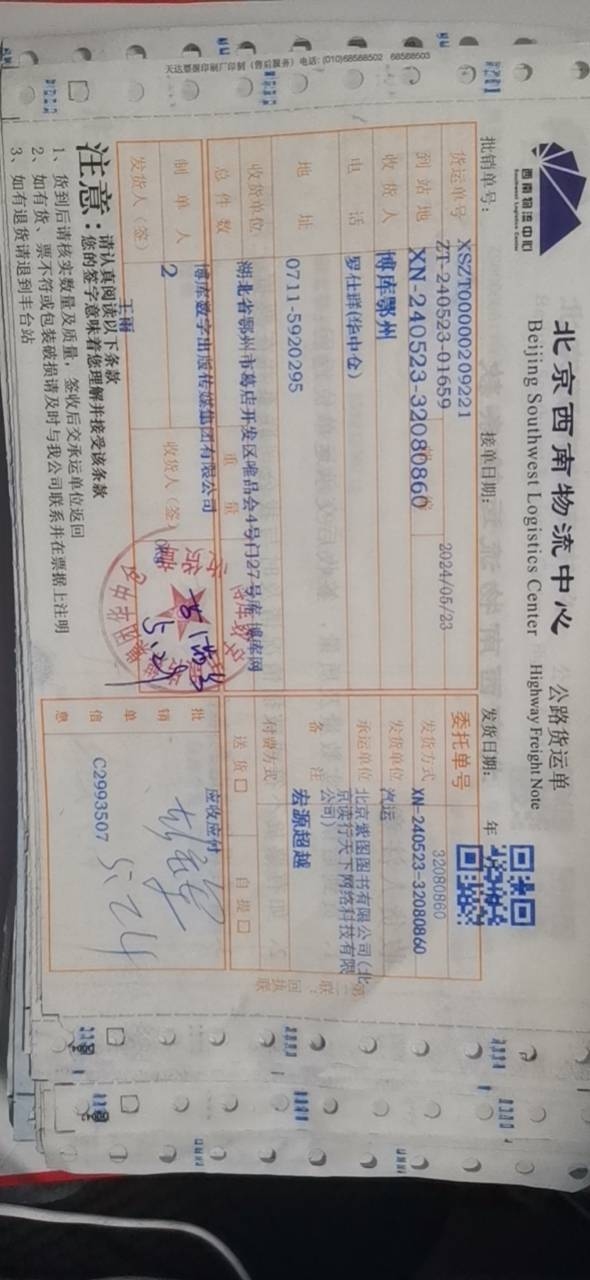 天达票据印刷厂印制（售后服务）电话: (010)68568502 68568503
西南物流中心
Southwest Logistics Center
北京西南物流中心 公路货运单
Beijing Southwest Logistics Center Highway Freight Note
批销单号: 接单日期: 发货日期: 年
XSZT00000209221
货运单号 ZT-240523-01659 2024/05/23
委托单号 32080860
到站地 XN-240523-32080860
发货方式 XN-240523-32080860
收货人 博库鄂州
发货单位 汽运
电话 罗仕群(华中仓)
承运单位 北京紫图图书有限公司(北京读行天下网络科技有限公司)
地址 0711-5920295
备注 宏源超越
收货单位 湖北省鄂州市葛店开发区唯品会4号门27号库 博库网
付费方式
总件数 博库数字出版传媒集团有限公司 重量
送货□ 自提□
制单人 2 收货人（签）
批销单信息 应收应付
C2993507
5.24
发货人（签） 王雨
5.29
第二联：回执联
注意：请认真阅读以下条款
您的签字意味着您理解并接受该条款
1、货到后请核实数量及质量，签收后交承运单位返回
2、如有货、票不符或包装破损请及时与我公司联系并在票据上注明
3、如有退货请退到丰台站